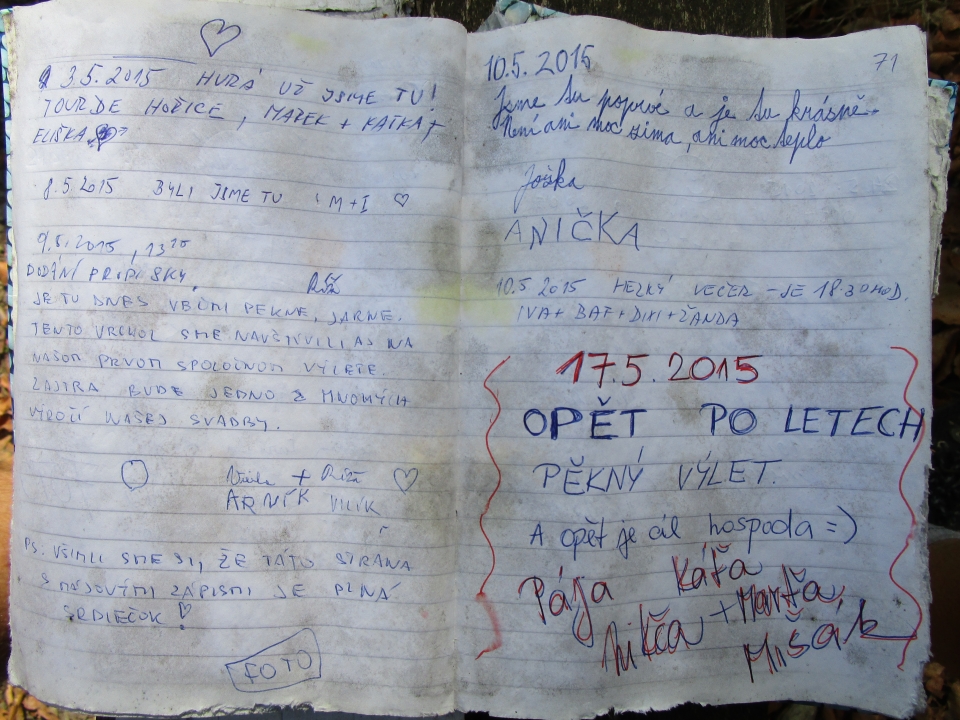 3.5.2015 HURÁ UŽ JSME TU!
TOUR DE HOŘICE, MAREK + KATKA +
ELIŠKA
8.5.2015 BYLI JSME TU M+I
9.5.2015, 13
DODÁNÍ PROPISKY. Růž
JE TU DNES VEĽMI PEKNE, JARNE.
TENTO VRCHOL SME NAVŠTIVILI AS NA
NAŠOM PRVOM SPOLOČNOM VÝLETE.
ZAJTRA BUDE JEDNO Z MNOHÝCH
VÝROČÍ NAŠEJ SVADBY.
+
ARNÍK VILÍK
PS: VŠIMLI SME SI, ŽE TÁTO STRANA
S MÁJOVÝMI ZÁPISMI JE PLNÁ
SRDIEČOK!
FOTO
71
10.5.2015
Jsme tu poprvé a je tu krásně.
Není ani moc zima, ani moc teplo
Joška
ANIČKA
10.5 2015 HEZKÝ VEČER - JE 18.30 HOD.
IVA + BAF + DIXI + ŽANDA
17.5.2015
OPĚT PO LETECH
PĚKNÝ VÝLET.
A opět je cíl hospoda =)
Pája Káťa
Nikča + Marťa
Mišák